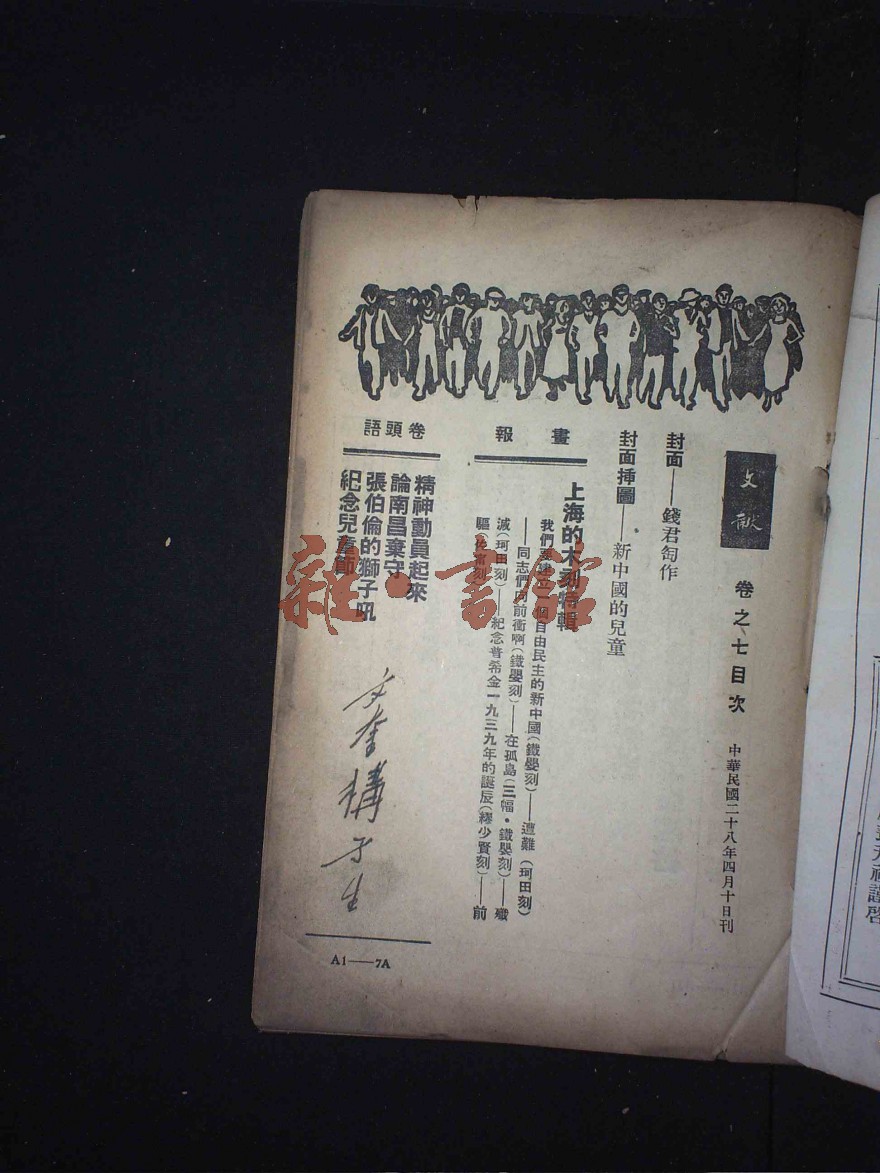 文献
卷之七目次
中華民國二十八年四月十日刊
封面——錢君匋作
封面挿圖——新中國的兒童
畫報
上海的木刻特輯
我們要建立一個自由民主的新中國(鐵嬰刻)——遭難(珂田刻)
——同志們向前衝啊(鐵嬰刻)——在孤島(三幅·鐵嬰刻)——殲
滅(珂田刻)——紀念普希金一九三九年的誕辰(繆少賢刻)——前
驅(刻)
卷頭語
精神動員起來
論南昌棄守
張伯倫的獅子吼
紀念兒童節
A1——7A
雜·書館
謹啓